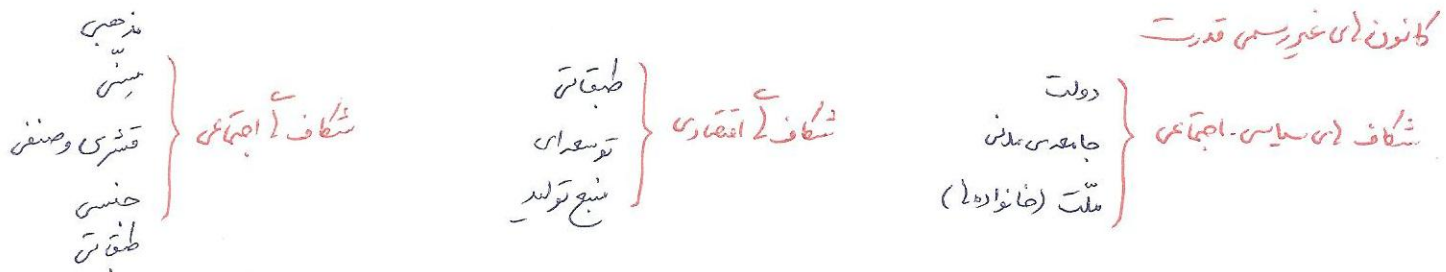 کانون‌های غیررسمی قدرت
شکاف‌های سیاسی - اجتماعی
دولت
جامعه‌ی مدنی
ملّت (خانواده‌ها)
شکاف‌های اقتصادی
طبقاتی
توسعه‌ای
منبع تولید
شکاف‌های اجتماعی
مذهبی
سِنّی
قشری و صنفی
جنسی
طبقاتی